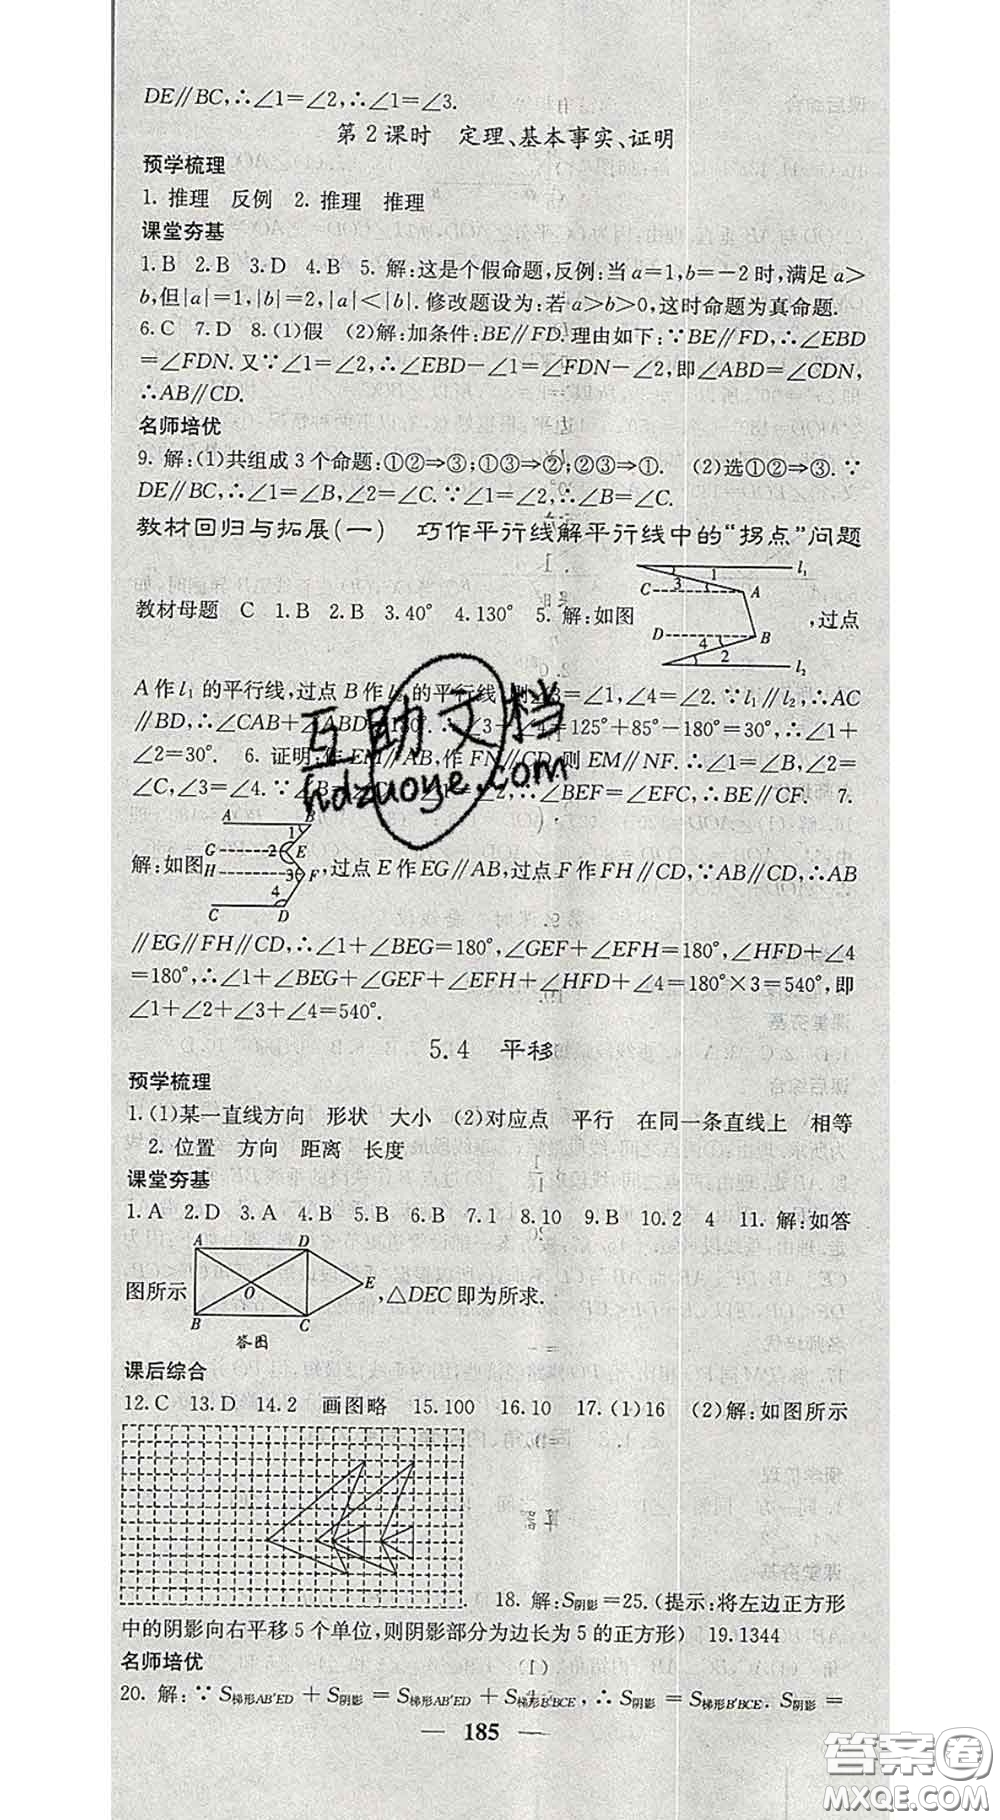 DE∥BC,∴∠1=∠2,∴∠1=∠3.
第2课时 定理、基本事实、证明
预学梳理
1. 推理 反例 2. 推理 推理
课堂夯基
1.B 2.B 3.D 4.B 5. 解:这是个假命题,反例:当a=1,b=-2时,满足a>
b,但|a|=1,|b|=2,|a|<|b|. 修改题设为:若a>b>0,这时命题为真命题.
6.C 7.D 8.(1)假 (2)解:加条件:BE∥FD.理由如下:∵BE∥FD,∴∠EBD
=∠FDN.又∵∠1=∠2,∴∠EBD-∠1=∠FDN-∠2,即∠ABD=∠CDN,
∴AB∥CD.
名师培优
9. 解:(1)共组成3个命题:①②⇒③;①③⇒②;②③⇒①. (2)选①②⇒③.∵
DE∥BC,∴∠1=∠B,∠2=∠C.∵∠1=∠2,∴∠B=∠C.
教材回归与拓展(一) 巧作平行线解平行线中的“拐点”问题
教材母题 C 1.B 2.B 3.40° 4.130° 5. 解:如图
3 1 l₁
C A
D B
4
2 l₂
,过点
A作l₁的平行线,过点B作l₂的平行线,则∠3=∠1,∠4=∠2.∵l₁∥l₂,∴AC
∥BD,∴∠CAB+∠ABD=180°.∴∠3+∠4=125°+85°-180°=30°,∴∠1+
∠2=30°. 6. 证明:作EM∥AB,作FN∥CD,则EM∥NF.∴∠1=∠B,∠2=
∠C,∠3=∠4.∵∠B=∠C,∴∠1=∠2,∴∠BEF=∠EFC,∴BE∥CF. 7.
解:如图
A B
1
G 2 E
H 3 F
4
C D
,过点E作EG∥AB,过点F作FH∥CD,∵AB∥CD,∴AB
∥EG∥FH∥CD,∴∠1+∠BEG=180°,∠GEF+∠EFH=180°,∠HFD+∠4
=180°,∴∠1+∠BEG+∠GEF+∠EFH+∠HFD+∠4=180°×3=540°,即
∠1+∠2+∠3+∠4=540°.
5.4 平移
预学梳理
1.(1)某一直线方向 形状 大小 (2)对应点 平行 在同一条直线上 相等
2. 位置 方向 距离 长度
课堂夯基
1.A 2.D 3.A 4.B 5.B 6.B 7.1 8.10 9.B 10.2 4 11. 解:如答
图所示
A D
O E
B C
答图
,△DEC即为所求.
课后综合
12.C 13.D 14.2 画图略 15.100 16.10 17.(1)16 (2)解:如图所示
. 18. 解:S阴影=25.(提示:将左边正方形
中的阴影向右平移5个单位,则阴影部分为边长为5的正方形) 19.1344
名师培优
20. 解:∵S梯形AB′ED+S阴影=S梯形AB′ED+S梯形B′BCE,∴S阴影=S梯形B′BCE. S阴影=
— 185 —
互助文档
hdzuoye.com
答案圈
MXQE.COM